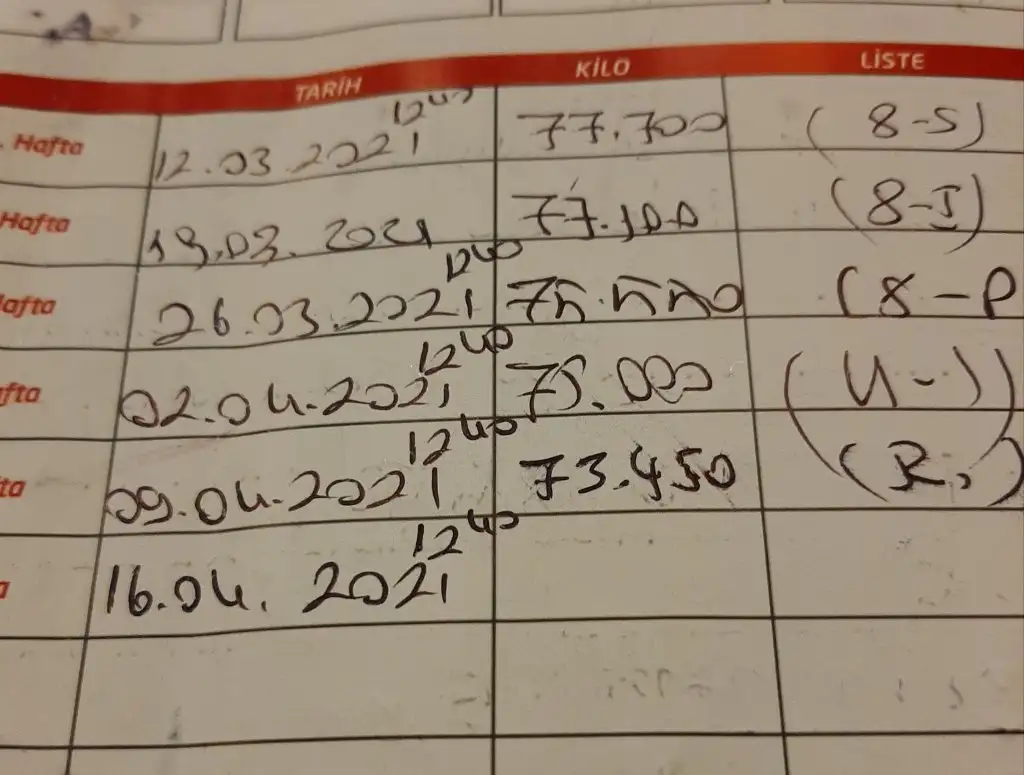 TARİH KİLO LİSTE
Hafta 12.03.2021 12⁴⁰ 77.700 (8-S)
Hafta 19.03.2021 77.100 (8-I)
afta 26.03.2021 12⁴⁰ 75.550 (8-P
fta 02.04.2021 12⁴⁰ 75.000 (4-)
ta 09.04.2021 12⁴⁰ 73.450 (R,)
a 16.04.2021 12⁴⁰